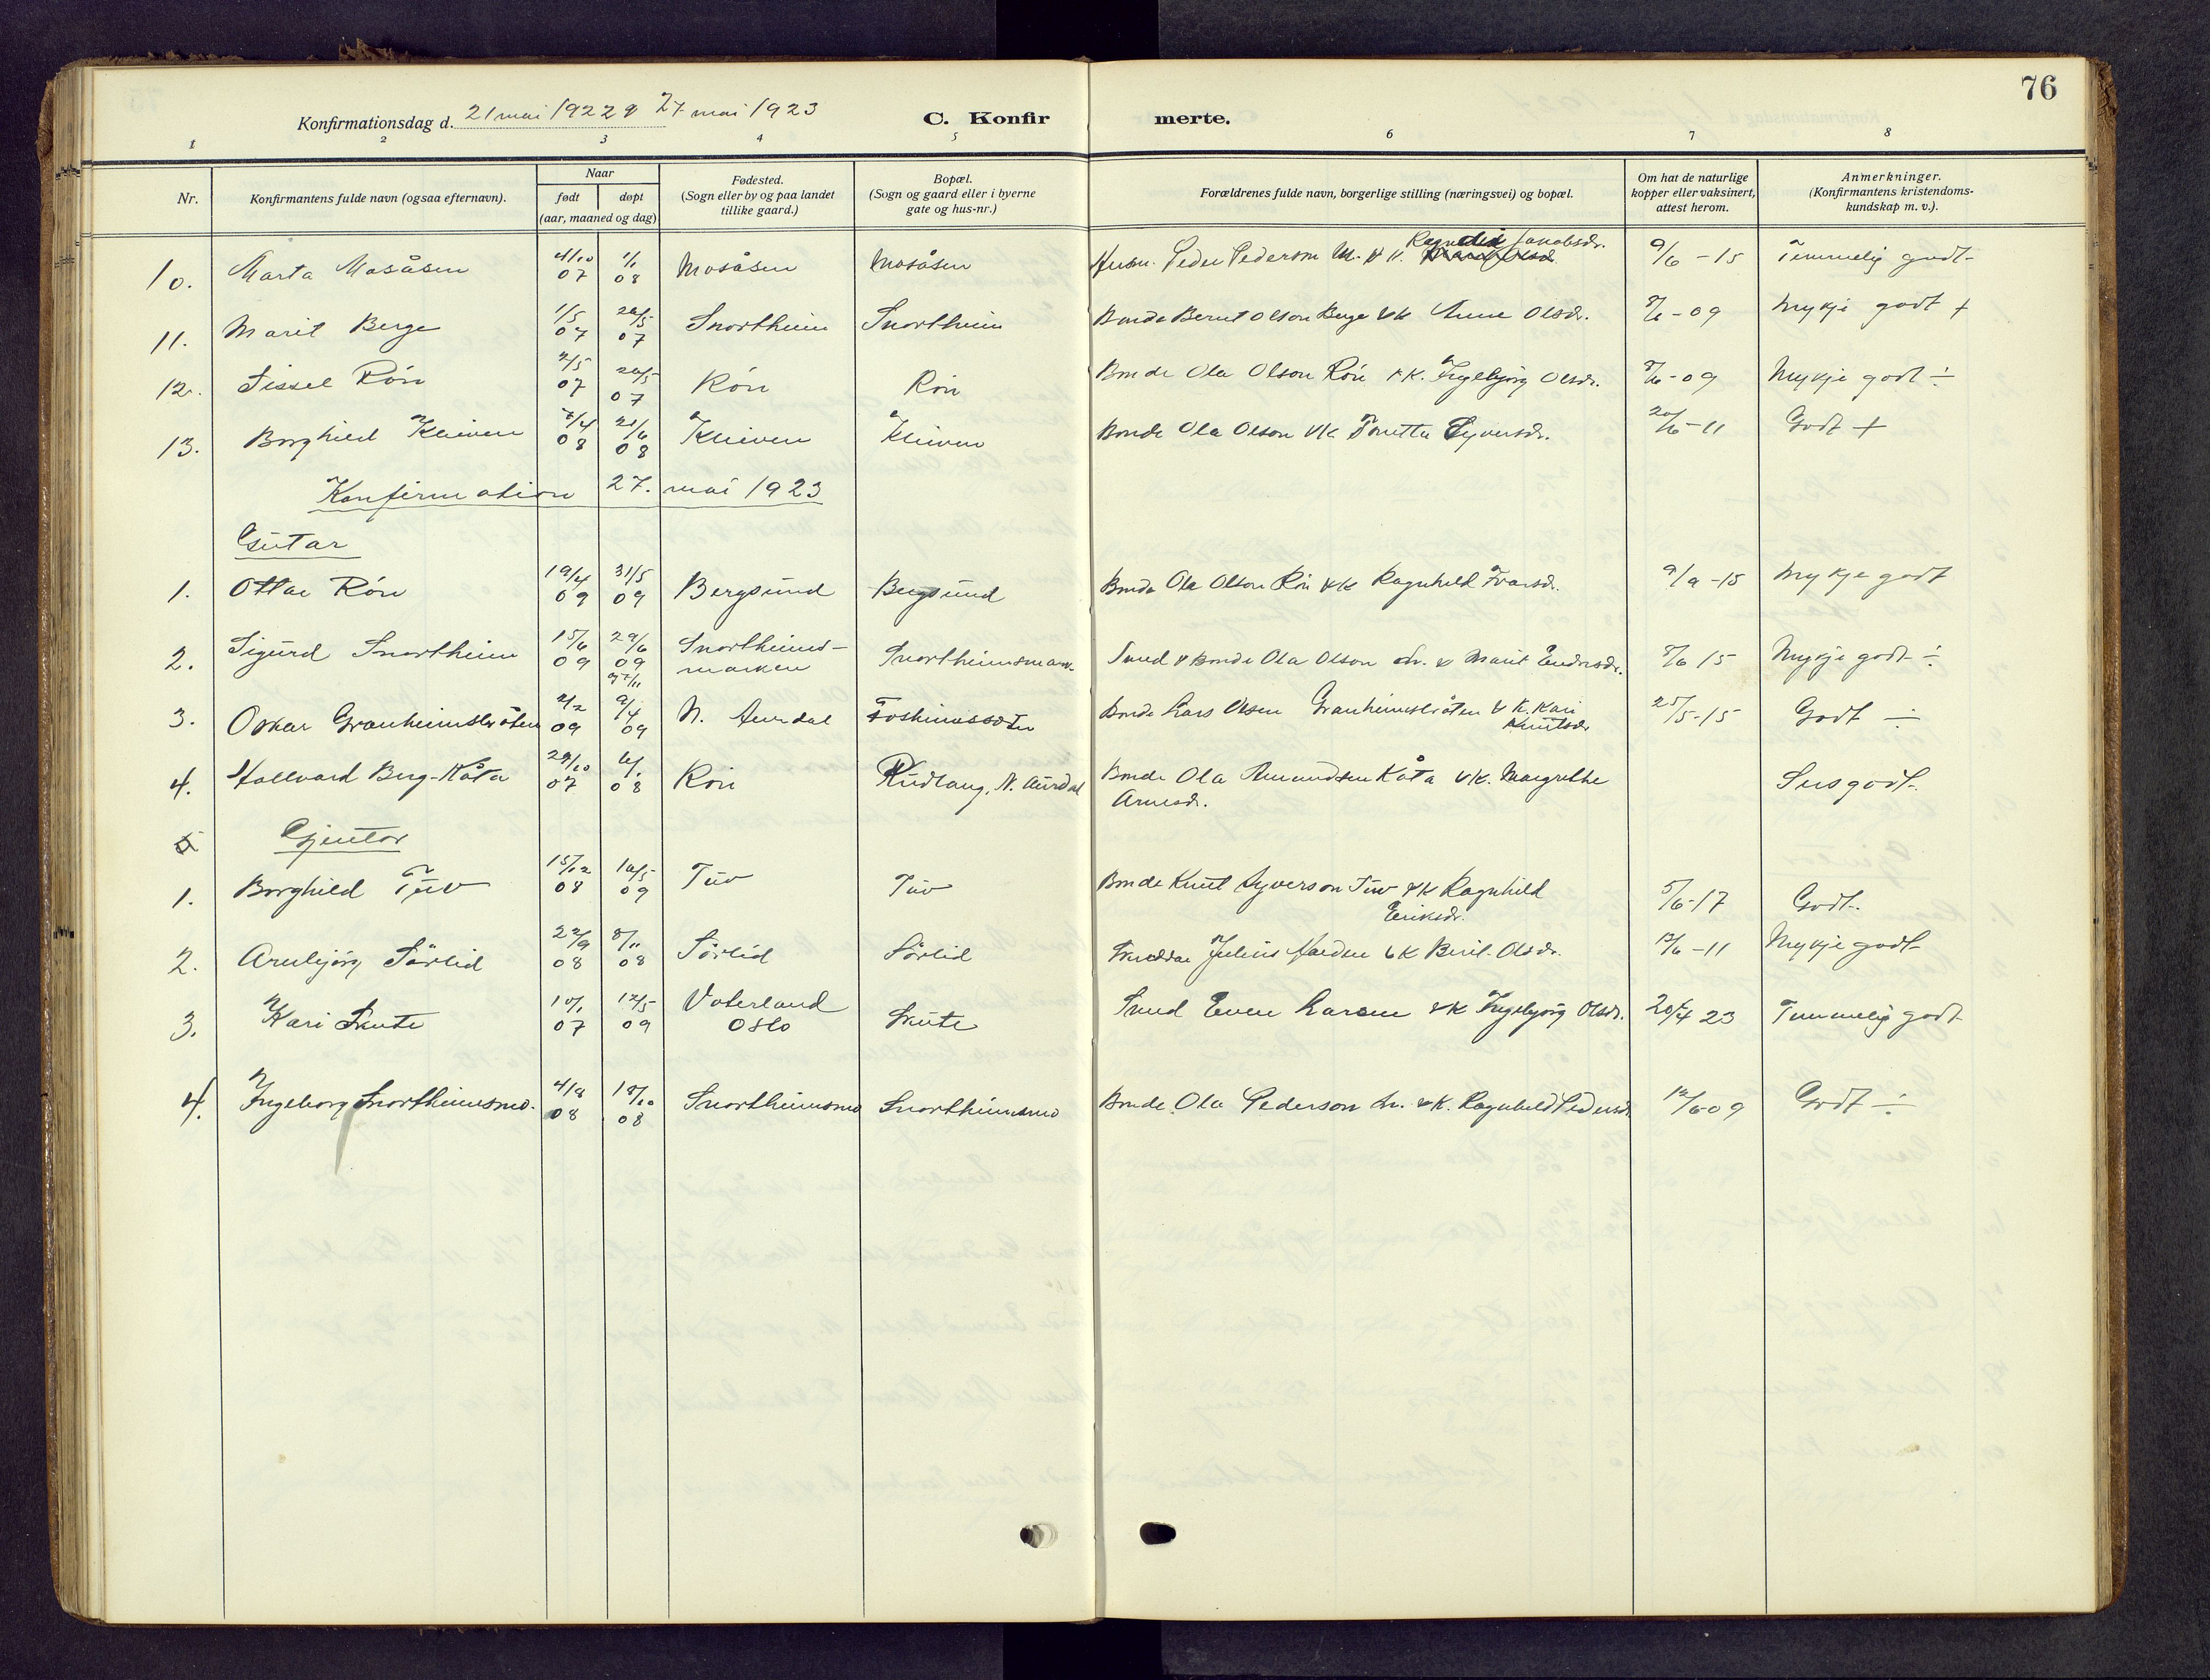 76
Konfirmationsdag d. 21 mai 1922 & 27 mai 1923 C. Konfirmerte.
1 2 3 4 5 6 7 8
Nr. Konfirmantens fulde navn (ogsaa efternavn). Naar født døpt (aar, maaned og dag) Fødested. (Sogn eller by og paa landet tillike gaard.) Bopæl. (Sogn og gaard eller i byerne gate og hus-nr.) Forældrenes fulde navn, borgerlige stilling (næringsvei) og bopæl. Om hat de naturlige kopper eller vaksinert, attest herom. Anmerkninger. (Konfirmantens kristendomskundskap m. v.).
10. Marta Mosåsen 4/10 07 1/1 08 Mosåsen Mosåsen Peder Pederson M. & K. Jacobsdr. 9/6 - 15 Temmelig godt
11. Marit Berge 1/5 07 20/5 07 Snortheim Snortheim Bonde Bernt Olson Berge & K Anne Olsdr. 8/6 - 09 Mykje godt +
12. Sissel Rön 2/5 07 20/5 07 Rön Rön Bonde Ola Olson Rön & K. Ingebjörg Olsdr. 8/6 - 09 Mykje godt ÷
13. Borghild Kleiven 7/4 08 21/6 08 Kleiven Kleiven Bonde Ola Olson & K Syversdr. 20/6 - 11 Godt +
Konfirmation 27. mai 1923
Gutar
1. Ottar Rön 19/4 09 31/5 09 Bergsund Bergsund Bonde Ola Olson Rön & K Ragnhild Ivarsdr. 9/9 - 15 Mykje godt
2. Sigurd Snortheim 15/6 09 29/6 09 Snortheimsmarken Snortheimsmark Smed & Bonde Ola Olson Sn. & Marit Endresdr. 8/6 15 Mykje godt ÷
3. Oskar Granheimsbråten 2/2 09 9/4 09 N. Aurdal Bonde Lars Olsen Granheimsbråten & K. Kari Knutsdr 25/5-15 Godt ÷
4. Hallvard Berg-Kåta 29/10 07 6/1 08 Rön Rudlang, N. Aurdal Bonde Ola Amundsen Kåta & K. Margrethe Arnesdr. Svs godt.
5 Gjentor
1. Borghild Tuv 15/12 08 16/5 09 Tuv Tuv Bonde Knut Syverson Tuv & K Ragnhild Eriksdr. 5/6-17 Godt.
2. Arnbjörg Sörlid 22/9 08 8/11 08 Sörlid Sörlid Julius & K Berit Olsdr. 12/6 - 11 Mykje godt
3. Kari Skute 10/1 07 12/5 09 Vaterland Oslo Skute Smed Even Larsen & K Ingebjörg Olsdr. 20/4 23 Temmelig godt
4. Ingeborg Snortheimsmo. 4/8 08 18/10 08 Snortheimsmo Snortheimsmo Bonde Ola Pederson Sn. & K. Ragnhild Pedersdr 12/6 09 Godt ÷